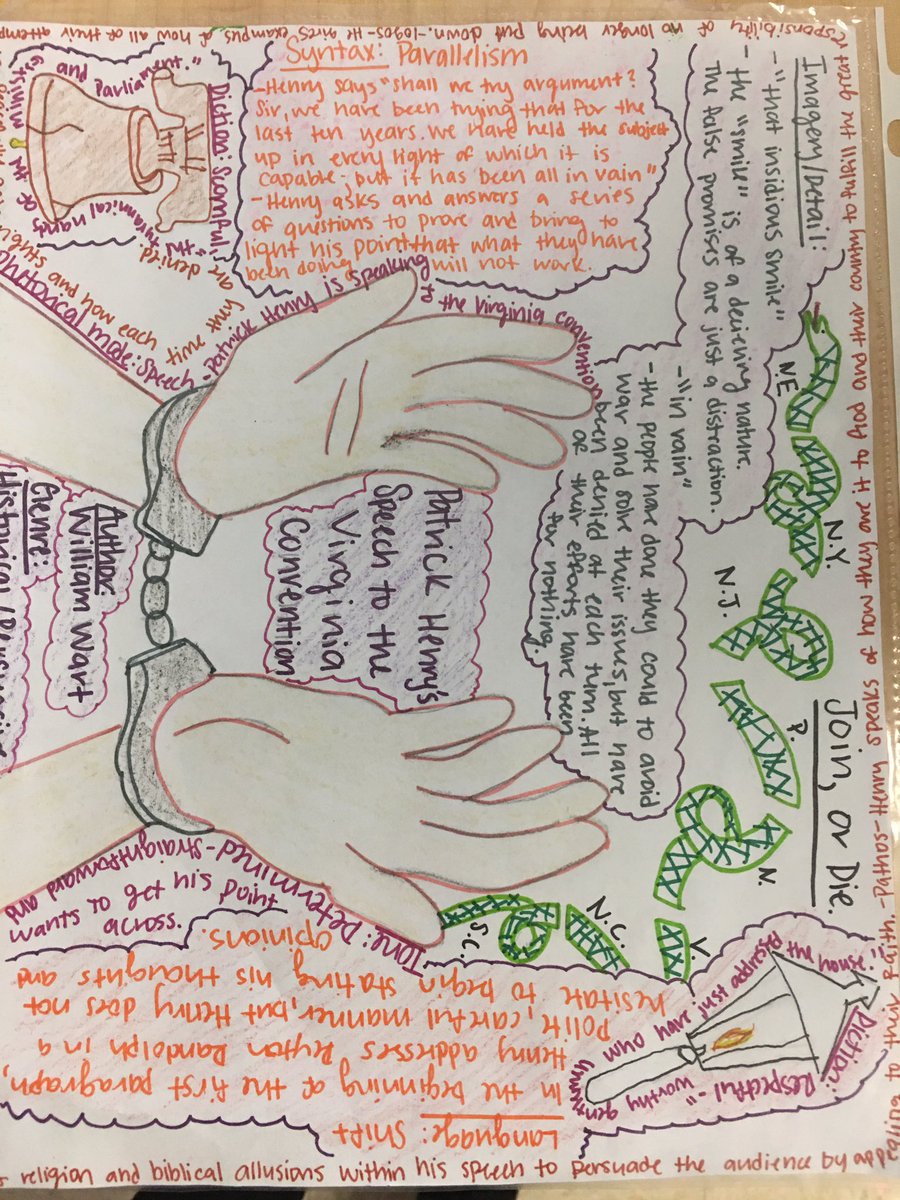 responsibility of no longer being put down. - logos- He gives examples of how all of their attempts
Syntax: Parallelism
-Henry says "shall we try argument?
Sir, we have been trying that for the
last ten years. We have held the subject
up in every light of which it is
capable; but it has been all in vain"
-Henry asks and answers a series
of questions to prove and bring to
light his point that what they have
been doing will not work.
Diction: Scornful
"the tyrannical hands of
the ministry
and
Parliament."
are denied
time they
rights and how each
Rhetorical mode: Speech - Patrick Henry is speaking
to the Virginia Convention
Imagery/Detail:
- "that insidious smile"
- the "smile" is of a decieving nature.
The false promises are just a distraction.
- "in vain"
- the people have done they could to avoid
war and solve their issues, but have
been denied at each turn. All
of their efforts have been
for nothing.
Join, or Die.
N.E.
N.Y.
N.J.
P.
N.
V.
N.C.
S.C.
Patrick Henry's
Speech to the
Virginia
Convention
Author:
William Wart
Genre:
Historical/Persuasive
Tone: Determined - straightforward and
wants to get his point
across.
Diction:
Respectful - "worthy gentlemen
who have just addressed
the house."
Language: Shift
In the beginning of the first paragraph,
Henry addresses Peyton Randolph in a
Polite, careful manner, but Henry does not
hesitate to begin stating his thoughts and
opinions.
-Pathos- Henry speaks of how they owe it to God and their country to fulfill the great
religion and biblical allusions within his speech to persuade the audience by appealing to their faith.